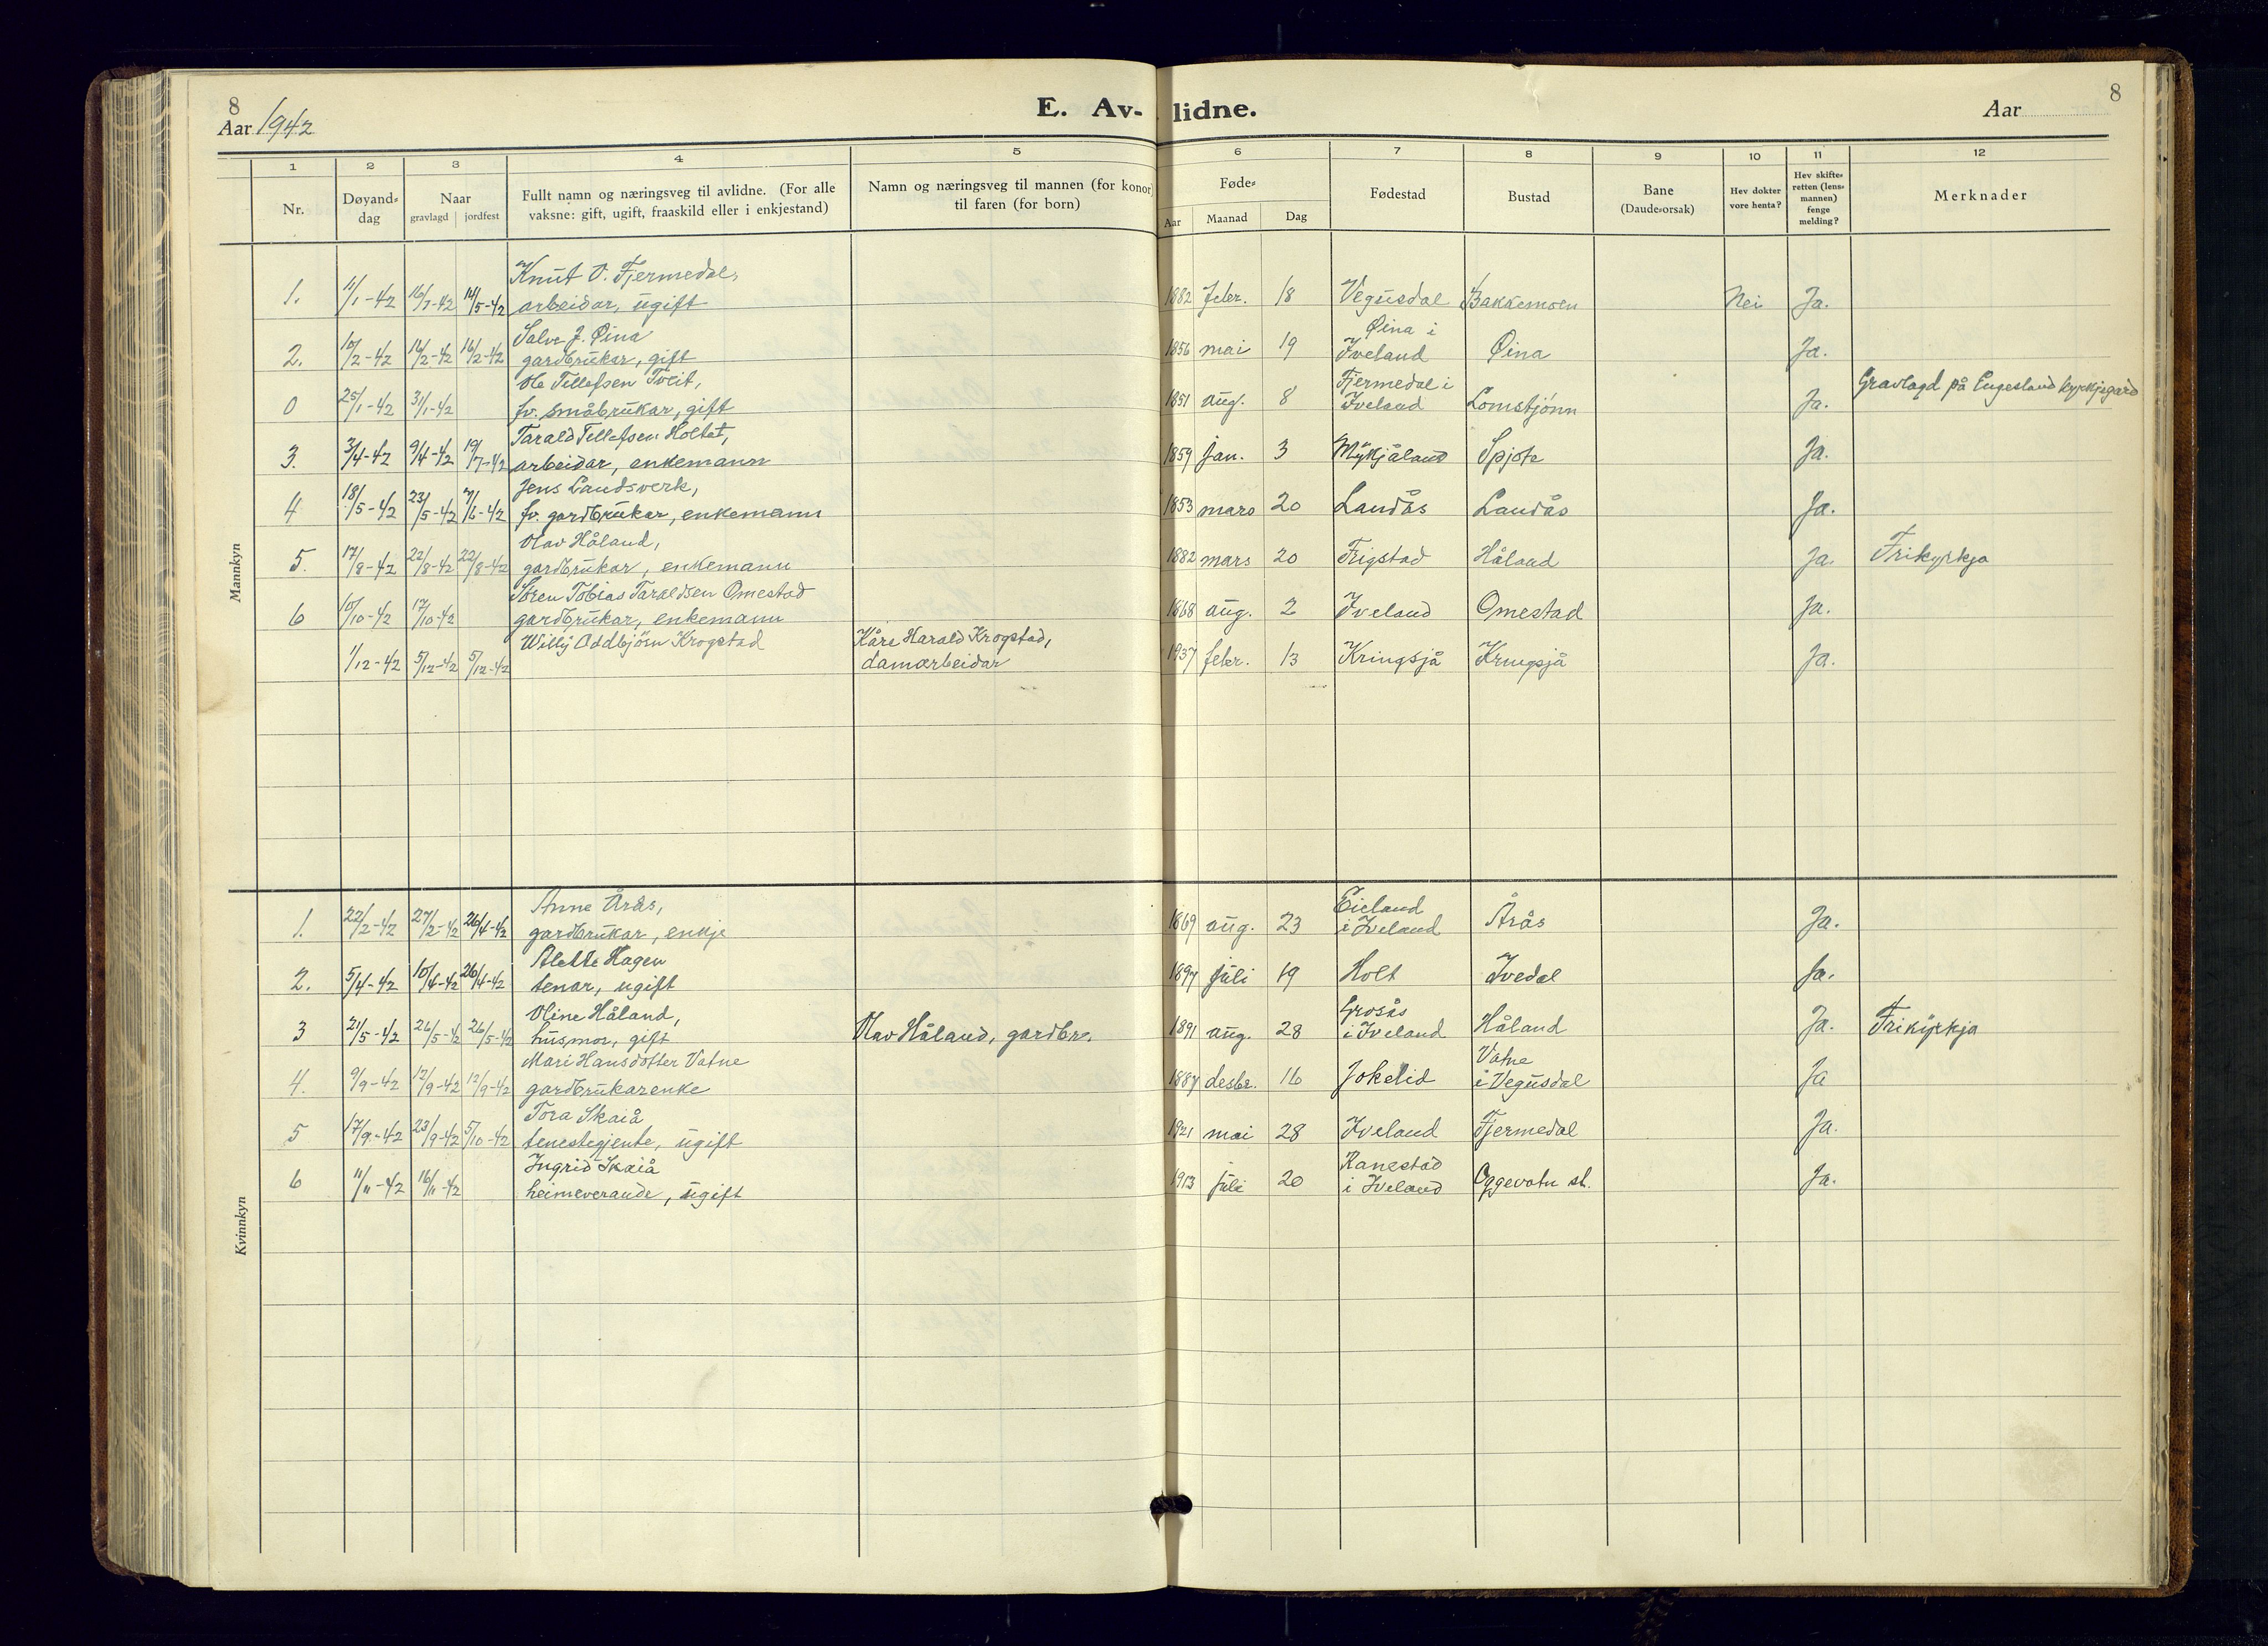 8
Aar 1942
E. Av-lidne.
Aar
8
1 2 3 4 5 6 7 8 9 10 11 12
Nr.
Døyand-dag
Naar
gravlagd jordfest
Fullt namn og næringsveg til avlidne. (For alle
vaksne: gift, ugift, fraaskild eller i enkjestand)
Namn og næringsveg til mannen (for konor)
til faren (for born)
Føde-
Aar Maanad Dag
Fødestad
Bustad
Bane
(Daude-orsak)
Hev dokter
vore henta?
Hev skifte-
retten (lens-
mannen)
fenge
melding?
Merknader
Mannkyn
Knut O. Fjermedal,
1. 11/1-42 16/7-42 14/5-42 arbeidar, ugift 1882 febr. 18 Vegusdal Bakkemoen Nei Ja.
Salve J. Øina Øina i
2. 10/2-42 16/2-42 16/2-42 gardbrukar, gift 1856 mai 19 Iveland Øina Ja.
Ole Tellefsen Tveit, Fjermedal i Gravlagd på Engesland kyrkjegard
0 25/1-42 31/1-42 fv. småbrukar, gift 1851 aug. 8 Iveland Lomstjønn Ja.
Tarald Tellefsen Holtet,
3. 3/4-42 9/4-42 19/7-42 arbeidar, enkemann 1859 jan. 3 Mykjåland Spjote Ja.
Jens Landsverk,
4 18/5-42 23/5-42 7/6-42 fv. gardbrukar, enkemann 1853 mars 20 Landås Landås Ja.
Olav Håland,
5. 17/8-42 22/8-42 22/8-42 gardbrukar, enkemann 1882 mars 20 Frigstad Håland Ja. Frikyrkja
Søren Tobias Taraldsen Omestad
6 10/10-42 17/10-42 gardbrukar, enkemann 1868 aug. 2 Iveland Omestad Ja.
Willy Oddbjørn Krogstad Kåre Harald Krogstad,
1/12-42 5/12-42 5/12-42 damarbeidar 1937 febr. 13 Kringsjå Kringsjå Ja.
Kvinnkyn
Anne Årås, Eieland
1. 22/2-42 27/2-42 26/4-42 gardbrukar, enkje 1869 aug. 23 i Iveland Årås Ja.
Alette Hagen
2. 5/4-42 10/4-42 26/4-42 tenar, ugift 1897 juli 19 Holt Ivedal Ja.
Oline Håland, Grosås
3 21/5-42 26/5-42 26/5-42 husmor, gift Olav Håland, gardbr. 1891 aug. 28 i Iveland Håland Ja. Frikyrkja
Mari Hansdotter Vatne Vatne
4. 9/9-42 12/9-42 12/9-42 gardbrukarenke 1887 desbr. 16 Jokelid i Vegusdal Ja
Tora Skaiå
5 17/9-42 23/9-42 5/10-42 tenestegjente, ugift 1921 mai 28 Iveland Fjermedal Ja.
Ingrid Skaiå Ranestad
6 11/11-42 16/11-42 heimeverande, ugift 1913 juli 20 i Iveland Oggevatn st. Ja.